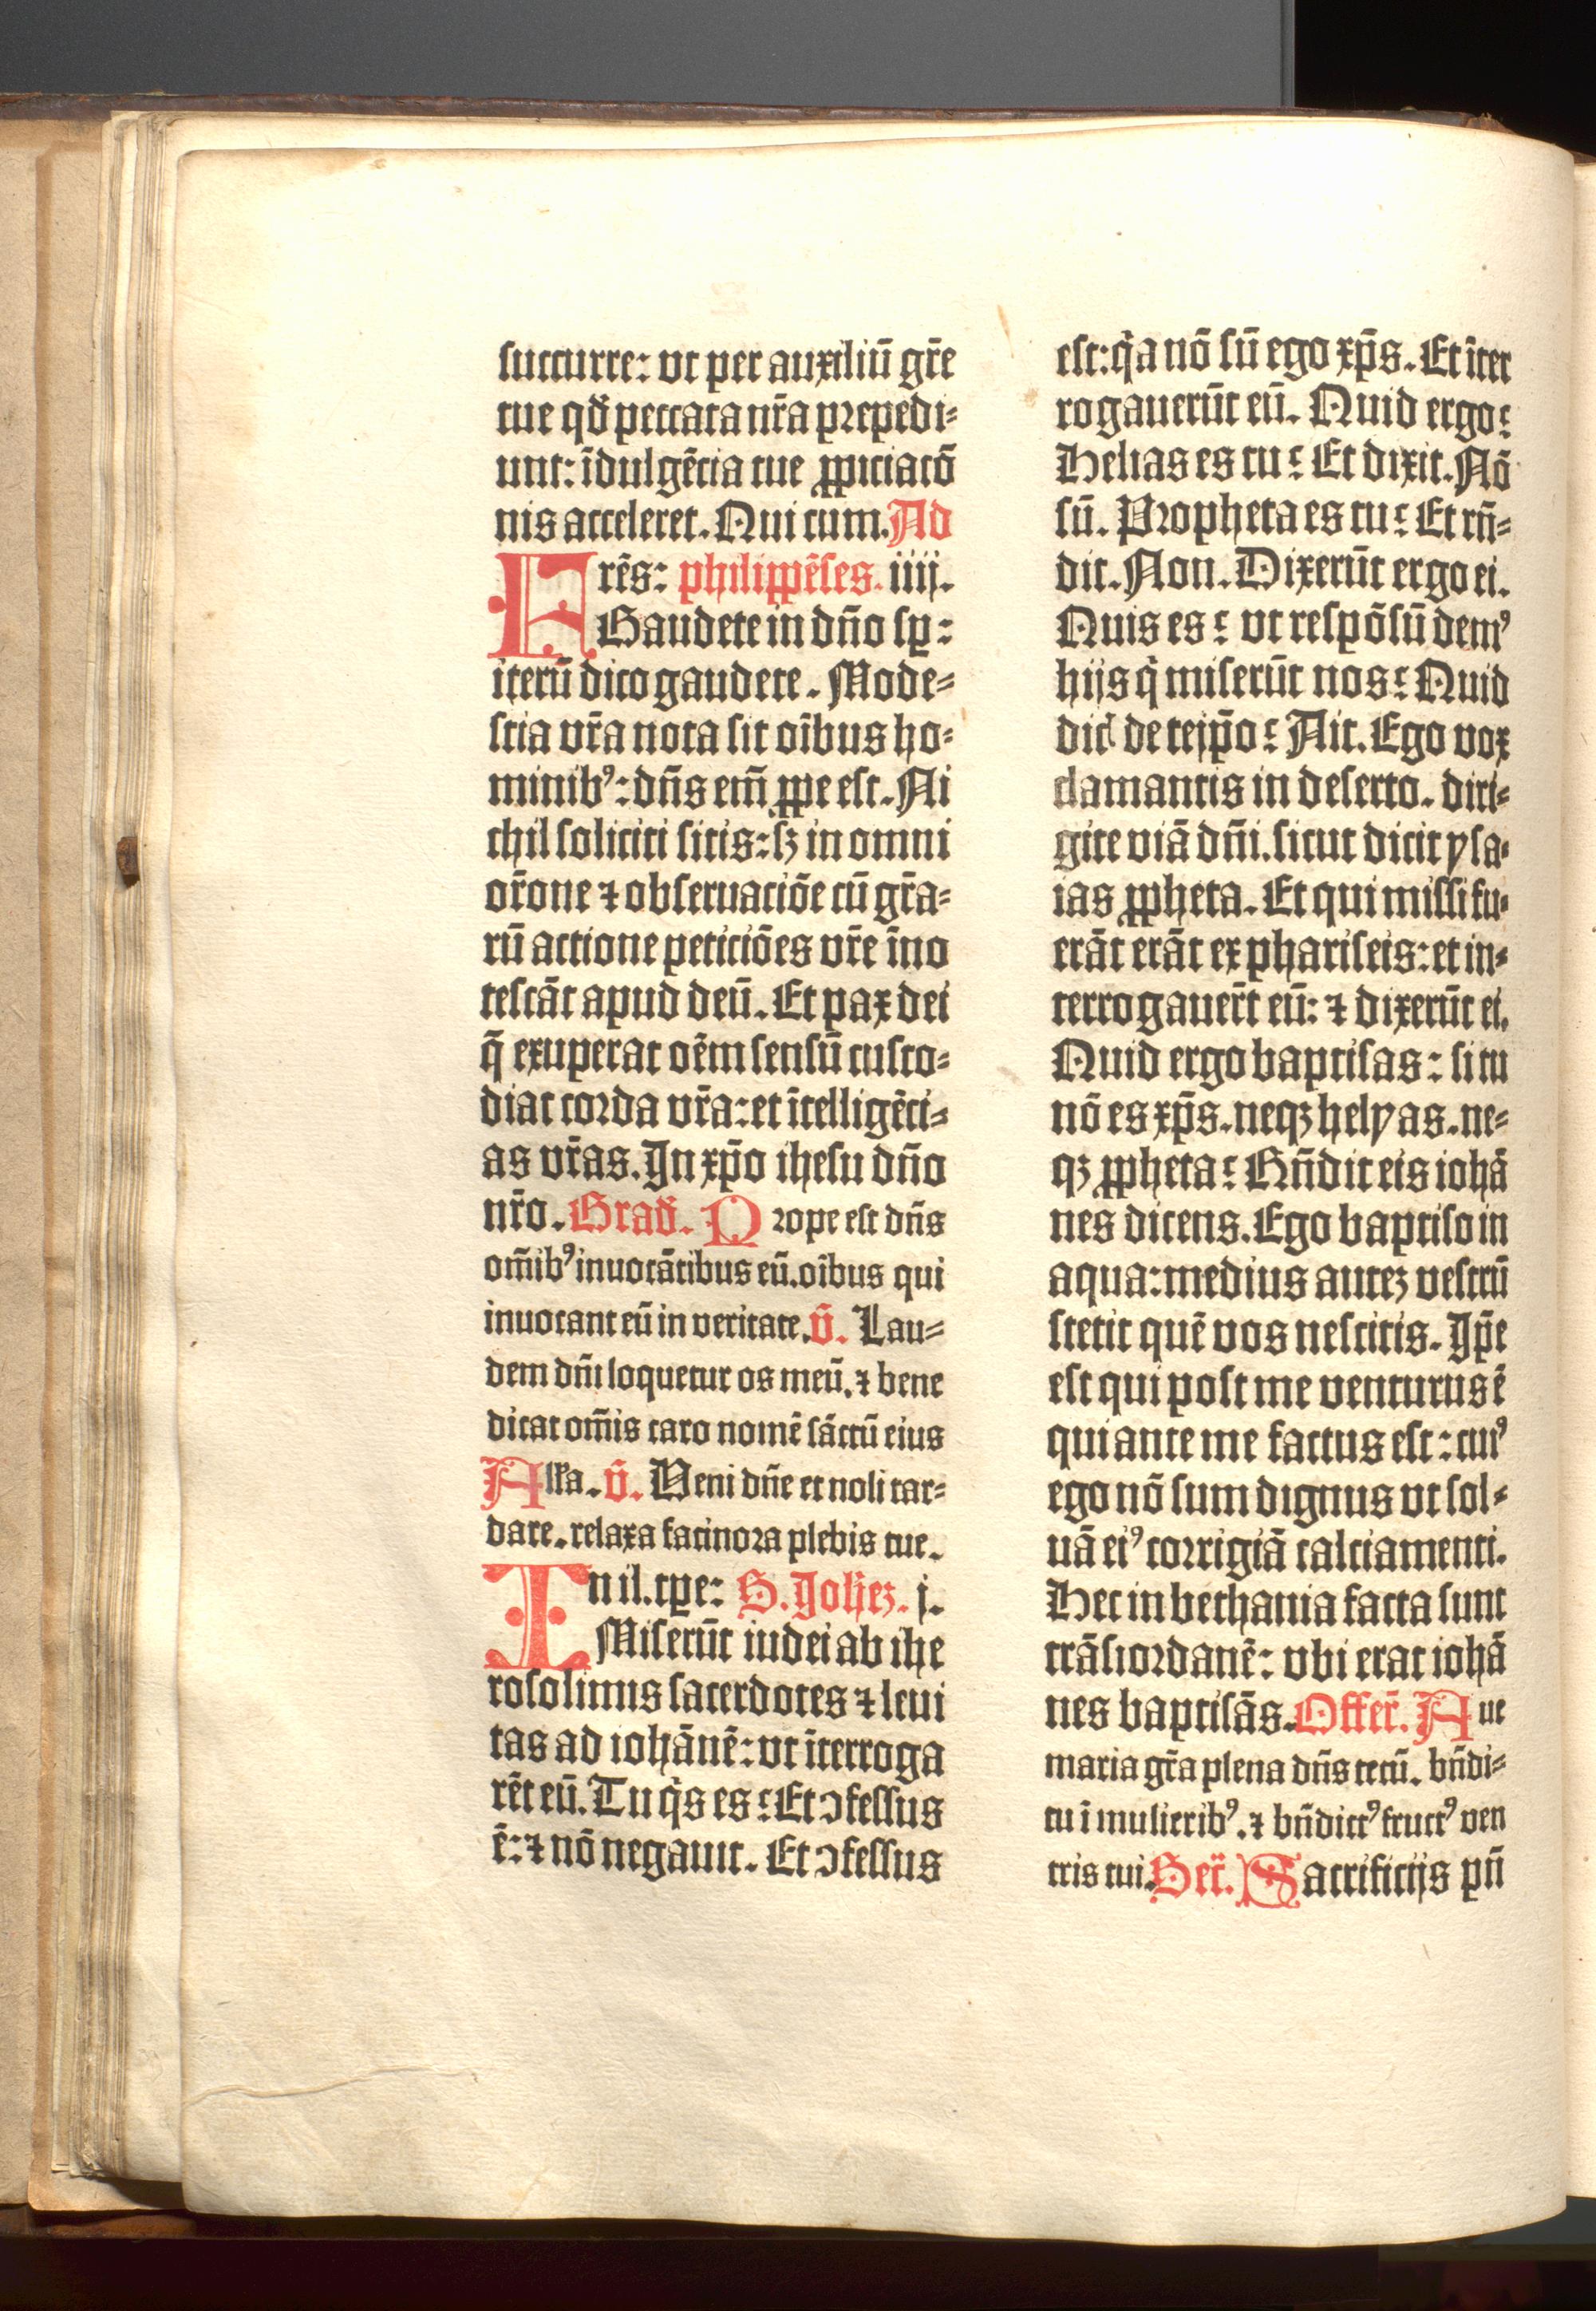 succurre: vt per auxiliū gr̄e
tue qd̄ peccata nr̄a prepedi⸗
unt: īdulgēcia tue ꝓpiciacō
nis acceleret. Qui cum. Ad
Frēs: philippēses. iiij.
Gaudete in dn̄o sꝑ:
iterū dico gaudete. Mode⸗
stia vr̄a nota sit oībus ho⸗
minibꝰ: dn̄s em̄ ꝓpe est. Ni
chil soliciti sitis: sꝫ in omni
or̄one ⁊ obseruaciōe cū gr̄a⸗
rū actione peticiōes vr̄e īno
tescāt apud deū. Et pax dei
q̄ exuperat oēm sensū custo⸗
diat corda vr̄a: et ītelligēci⸗
as vr̄as. In xp̄o ihesu dn̄o
nr̄o. Grad̄. Prope est dn̄s
om̄ibꝰ inuocātibus eū. oībus qui
inuocant eū in veritate. v̄. Lau⸗
dem dn̄i loquetur os meū. ⁊ bene
dicat om̄is caro nomē sāctū eius
All̄a. v̄. Veni dn̄e et noli tar⸗
dare. relaxa facinora plebis tue.
In il. tꝑe: S. Joħeꝫ. j.
Miserūt iudei ab ihe
rosolimis sacerdotes ⁊ leui
tas ad iohānē: vt īterroga
rēt eū. Tu qͥs es: Et ↄfessus
ē: ⁊ nō negauit. Et ↄfessus
est: qͥa nō sū ego xp̄s. Et īter
rogauerūt eū. Quid ergo:
Helias es tu: Et dixit. Nō
sū. Propheta es tu: Et rn̄⸗
dit. Non. Dixerūt ergo ei.
Quis es: vt respōsū demꝰ
hijs qͥ miserūt nos: Quid
dic̄ de teip̄o: Ait. Ego vox
clamantis in deserto. diri⸗
gite viā dn̄i. sicut dicit ysa⸗
ias ꝓpheta. Et qui missi fu⸗
erāt erāt ex phariseis: et in⸗
terrogauer̄t eū: ⁊ dixerūt ei.
Quid ergo baptisas: si tu
nō es xp̄s. neqꝫ helyas. ne⸗
qꝫ ꝓpheta: Rn̄dit eis iohā
nes dicens. Ego baptiso in
aqua: medius auteꝫ vestrū
stetit quē vos nescitis. Ip̄e
est qui post me venturus ē
qui ante me factus est: cuiꝰ
ego nō sum dignus vt sol⸗
uā eiꝰ corrigiā calciamenti.
Hec in bethania facta sunt
trās iordanē: vbi erat iohā
nes baptisās. Offer̄. Aue
maria gr̄a plena dn̄s tecū. bn̄di⸗
tu ī mulieribꝰ. ⁊ bn̄dictꝰ fructꝰ ven
tris tui. Secr̄. Sacrificijs pn̄